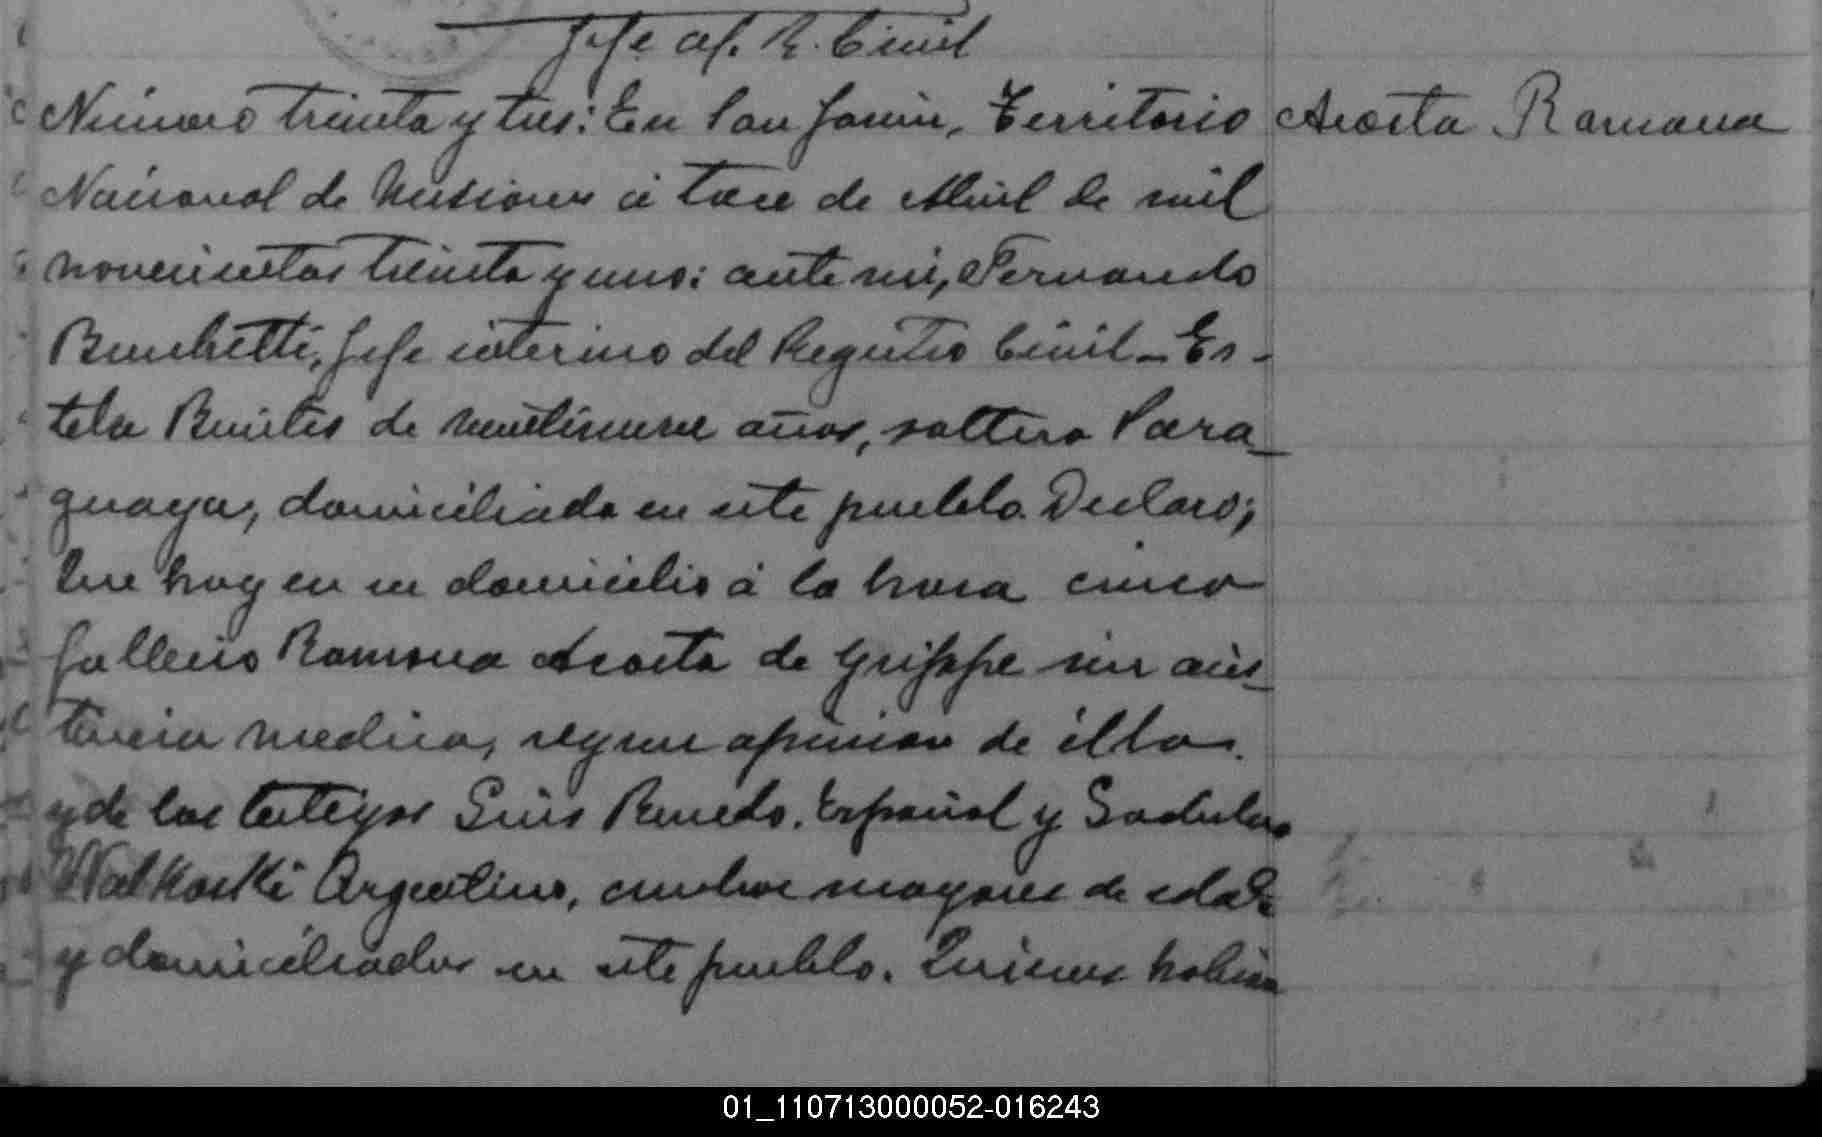 Jefe af. R. Civil
Número treinta y tres: En San Javier, Territorio Acosta Ramona
Nacional de Misiones á trece de Abril de mil
novecientos treinta y uno: ante mi, Fernando
Jefe interino del Registro Civil - Es-
tela Benites de veintinueve años, soltera Para-
guaya, domiciliada en este pueblo. Declaró;
Que hoy en su domicilio á la hora cinco
fallecio Ramona Acosta de Grippe sin asis-
tencia medica, segun opinion de ella.
y de los testigos Luis Español y
Argentino, ambos mayores de edad
y domiciliados en este pueblo. Quienes habian
01_110713000052-016243